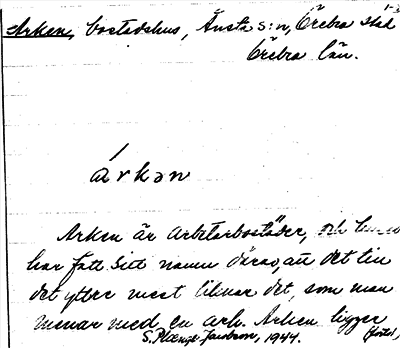 Arken, bostadshus, Ånsta s:n, Örebro stad
Örebro län.
árkən
Arken är arbetarbostäder, och huset
har fått sitt namn därav, att det till
det yttre mest liknar det, som man
menar med en ark. Arken ligger
S. Jansson, 1944. (forts.)